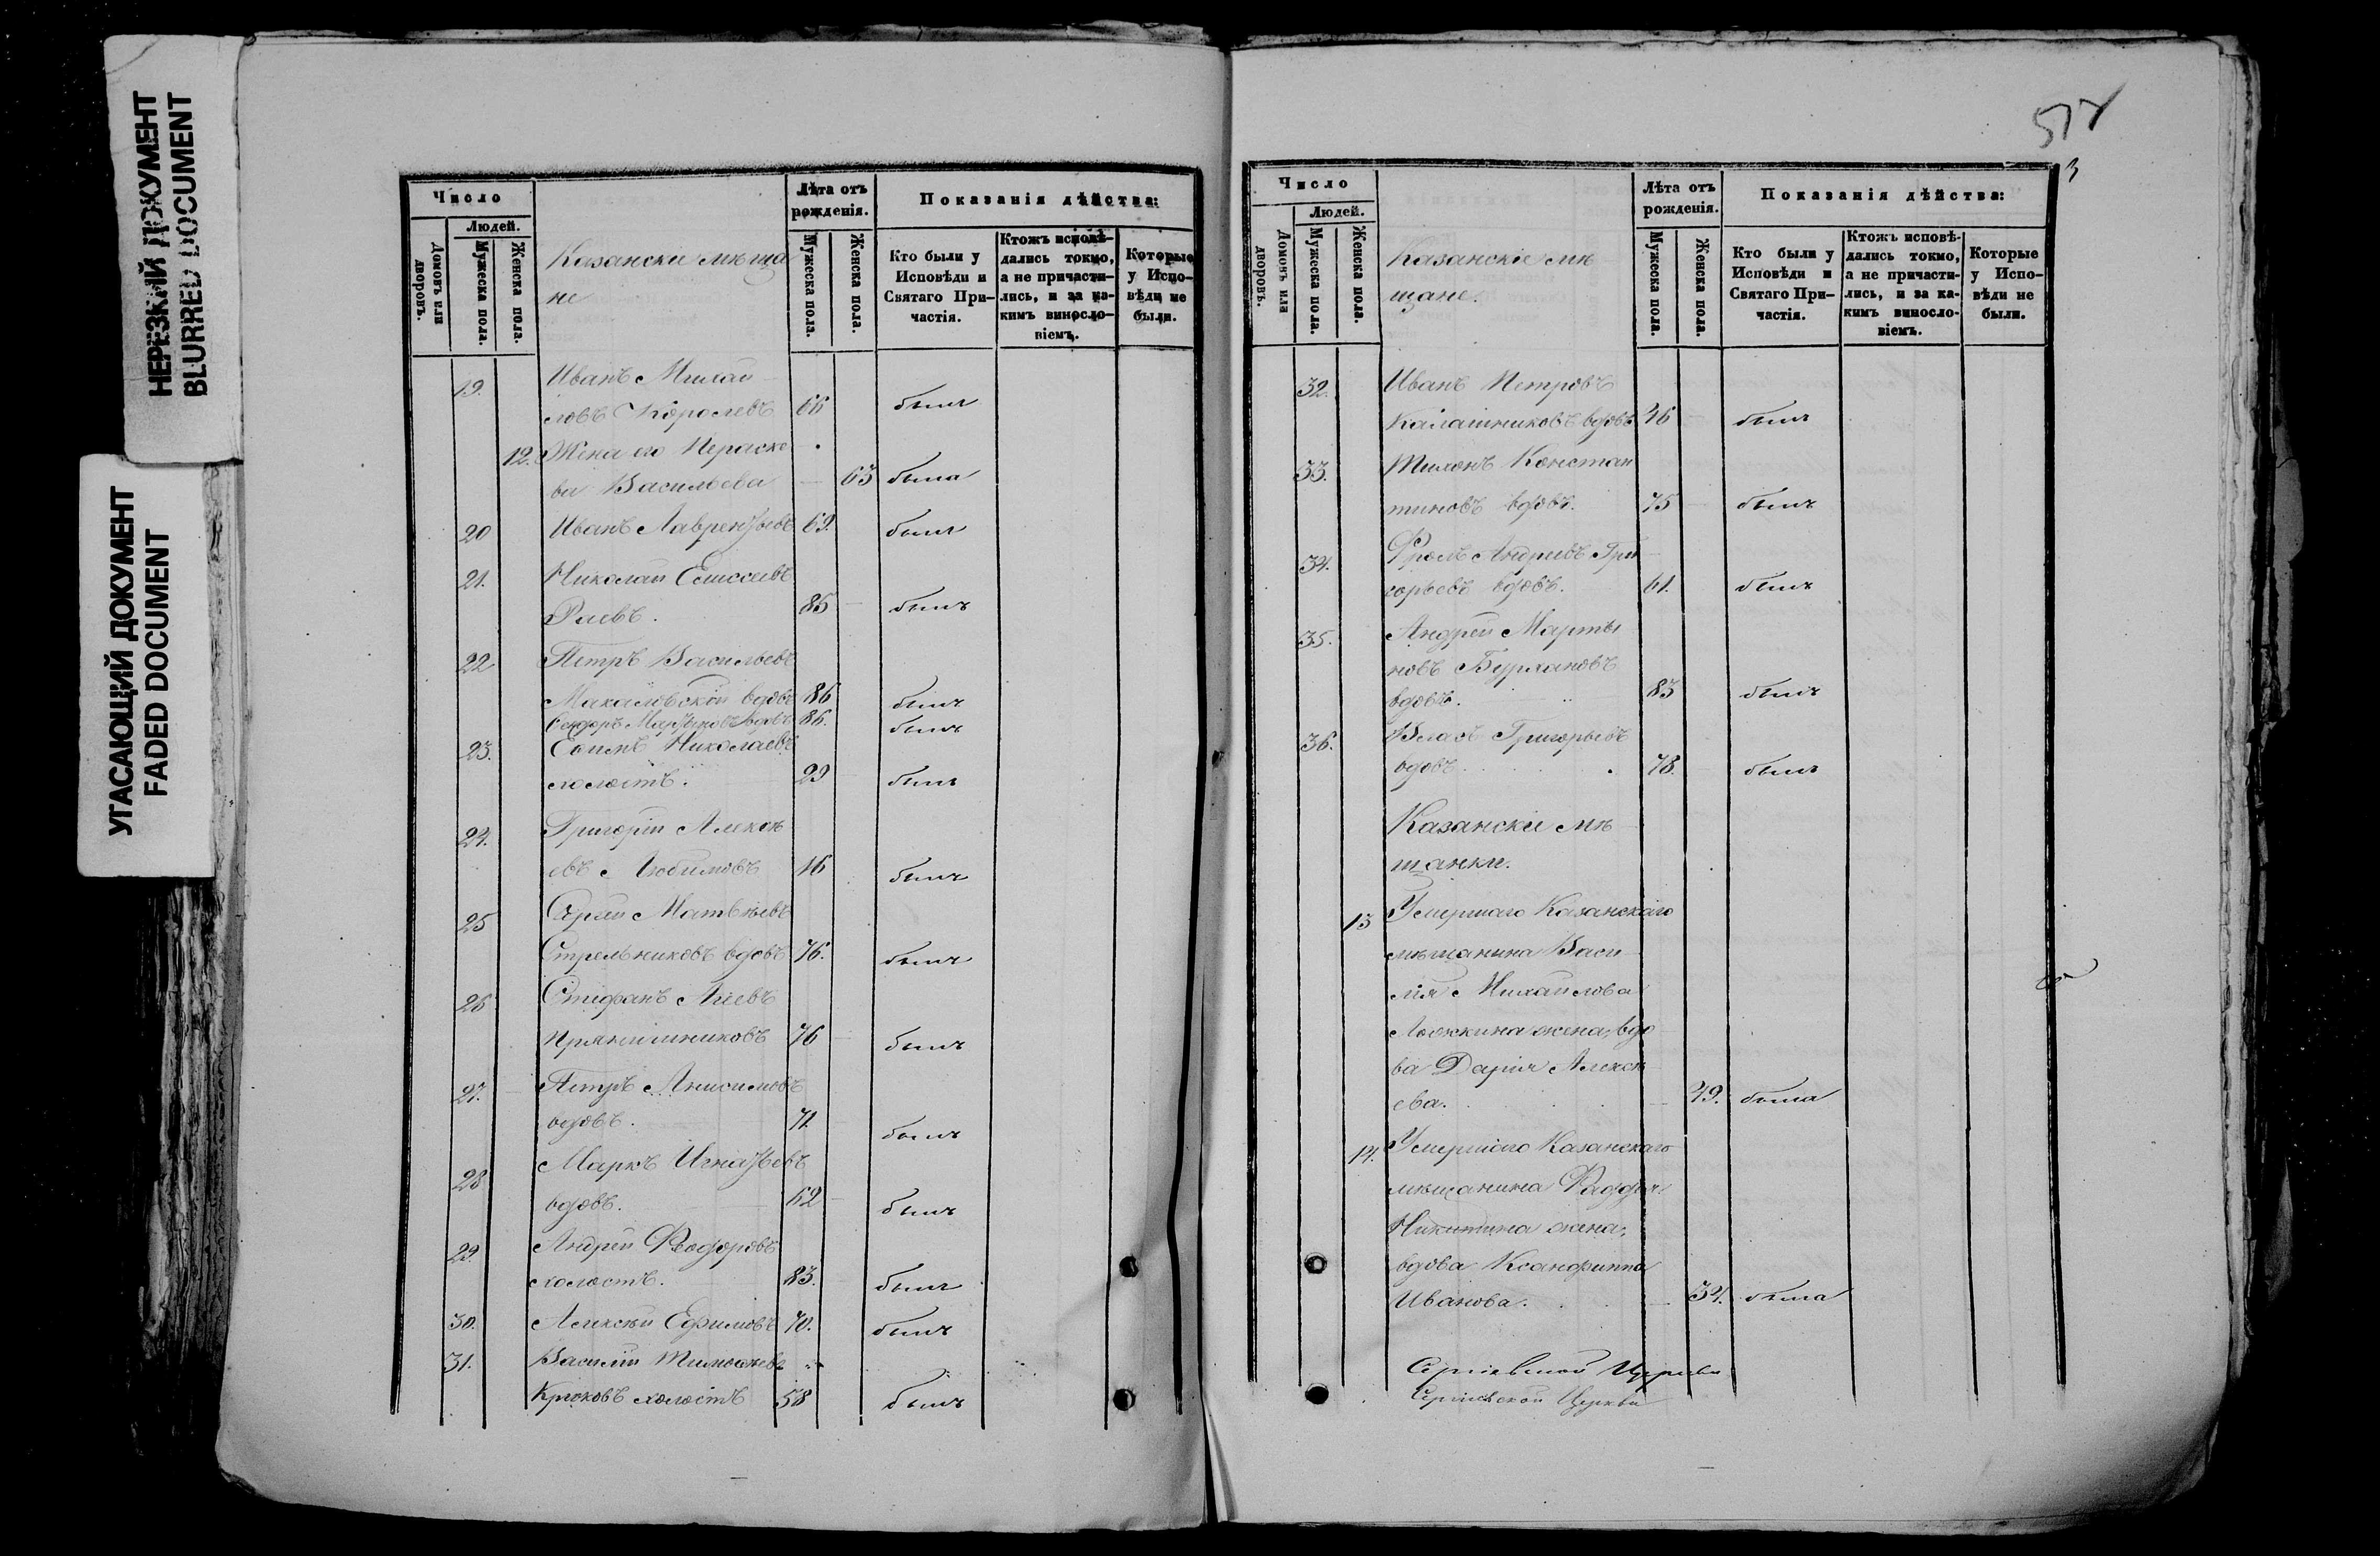 НЕРЕЗКИЙ ДОКУМЕНТ
BLURRED DOCUMENT
УГАСАЮЩИЙ ДОКУМЕНТ
FADED DOCUMENT
Число
Людей.
Домовъ или дворовъ.
Мужеска пола.
Женска пола.
Казанскіе мѣща
не
Лѣта отъ рожденія.
Мужеска пола.
Женска пола.
Показанія дѣйства:
Кто были у Исповѣди и Святаго При-частія.
Ктожъ исповѣ-дались токмо, а не причасти-лись, и за ка-кимъ виносло-віемъ.
Которые у Испо-вѣди не были.
19. Иванъ Михай
ловъ Королевъ 66 былъ
12. Жена его Параске
ва Васильева 63 была
20 Иванъ Лаврентьевъ 69. былъ
21. Николай Елиссеевъ
85 былъ
22 Петръ Васильевъ
вдовъ 86 былъ
вдовъ 86. былъ
23. Ефимъ Николаевъ
холостъ. 29 былъ
24. Григорій Алексѣ
евъ Любимовъ 46 былъ
25 Сергѣй Матвѣевъ
Стрельниковъ вдовъ 76. былъ
26 Стефанъ
Прянишниковъ 76 былъ
27. Петръ Анисимовъ
вдовъ. 71 былъ
28 Маркъ Игнатьевъ
вдовъ. 62 былъ
29. Андрей Феодоровъ
холостъ. 83. былъ
30. Алексѣй Ефимовъ 70. былъ
31. Василій Тимофеевъ
Крюковъ холостъ 58 былъ
Число
Людей.
Домовъ или дворовъ.
Мужеска пола.
Женска пола.
Казанскіе мѣ
щане.
Лѣта отъ рожденія.
Мужеска пола.
Женска пола.
Показанія дѣйства:
Кто были у Исповѣди и Святаго При-частія.
Ктожъ исповѣ-дались токмо, а не причасти-лись, и за ка-кимъ виносло-віемъ.
Которые у Испо-вѣди не были.
32. Иванъ Петровъ
Калашниковъ вдовъ 46 былъ
33. Тихонъ Констан
тиновъ вдовъ. 75 былъ
34. Фролъ Гри
горьевъ вдовъ. 61. былъ
35. Андрей Марты
новъ Бурхановъ
вдовъ. 83 былъ
36. Власъ Григорьевъ
вдовъ. 78. былъ
Казанскіе мѣ
щанки.
13 Умершаго Казанскаго
мѣщанина Васи
лія Михайлова
Ложкина жена, вдо
ва Дарія Алексѣ
ева. 49. была
14. Умершаго Казанскаго
мѣщанина Фаддея
Никитина жена,
вдова Ксанфиппа
Иванова. 54. была
Сергіевской Церкви
Сергіевской Церкви